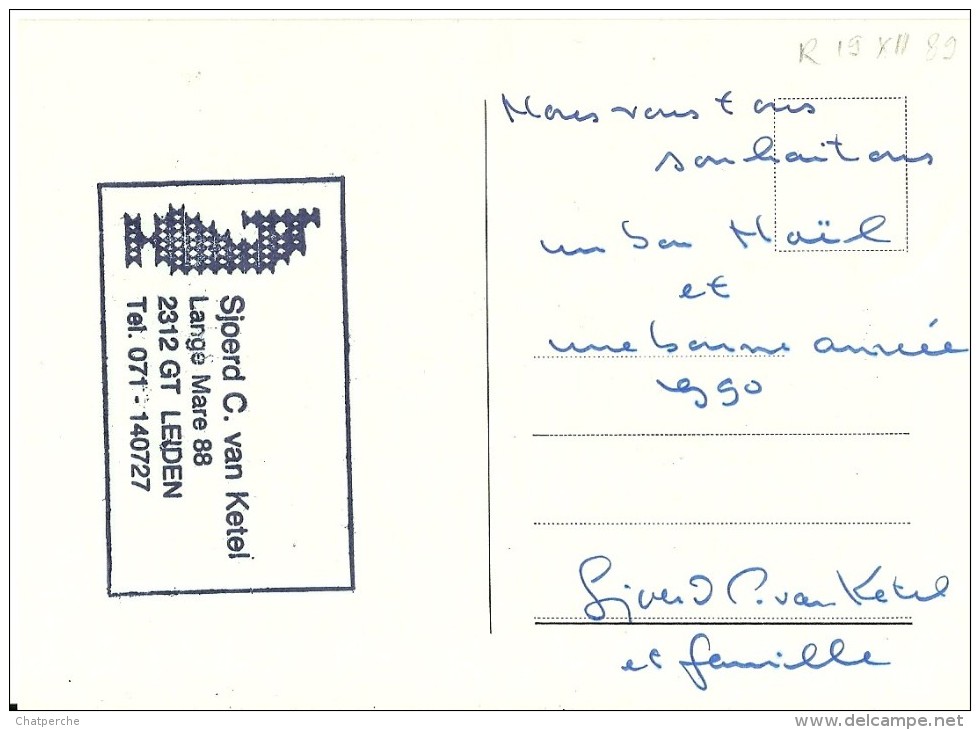 R 19 XII 89
Nous vous tous
souhaitons
un bon Noël
et
une bonne année
1990
Sjoerd C. van Ketel
et famille
Sjoerd C. van Ketel
Lange Mare 88
2312 GT LEIDEN
Tel. 071 - 140727
Chatperche
www.delcampe.net